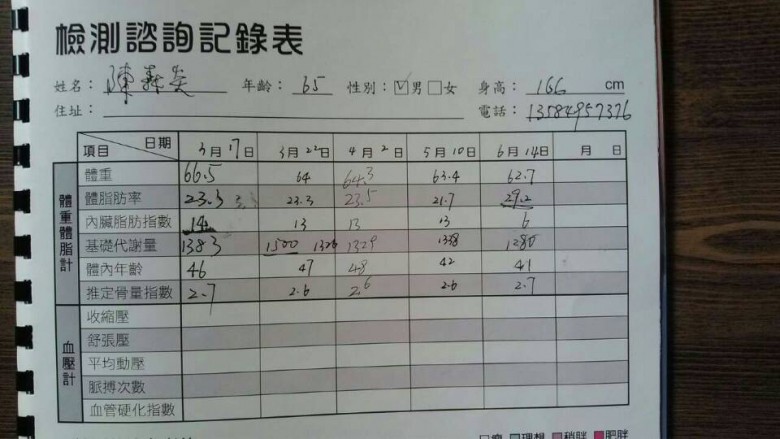 檢測諮詢記錄表
姓名： 陳森炎 年齡： 65 性別： ☑男 □女 身高： 166 cm
住址： 電話： 13584957376
項目 日期 3月17日 3月22日 4月2日 5月10日 6月14日 月 日
體重體脂計
體重 66.5 64 64.3 63.4 62.7
體脂肪率 23.3 23.3 23.5 21.7 29.2
內臟脂肪指數 14 13 13 13 6
基礎代謝量 1383 1500 1326 1329 1338 1280
體內年齡 46 47 48 42 41
推定骨量指數 2.7 2.6 2.6 2.6 2.7
血壓計
收縮壓
舒張壓
平均動壓
脈搏次數
血管硬化指數
理想 稍胖 肥胖